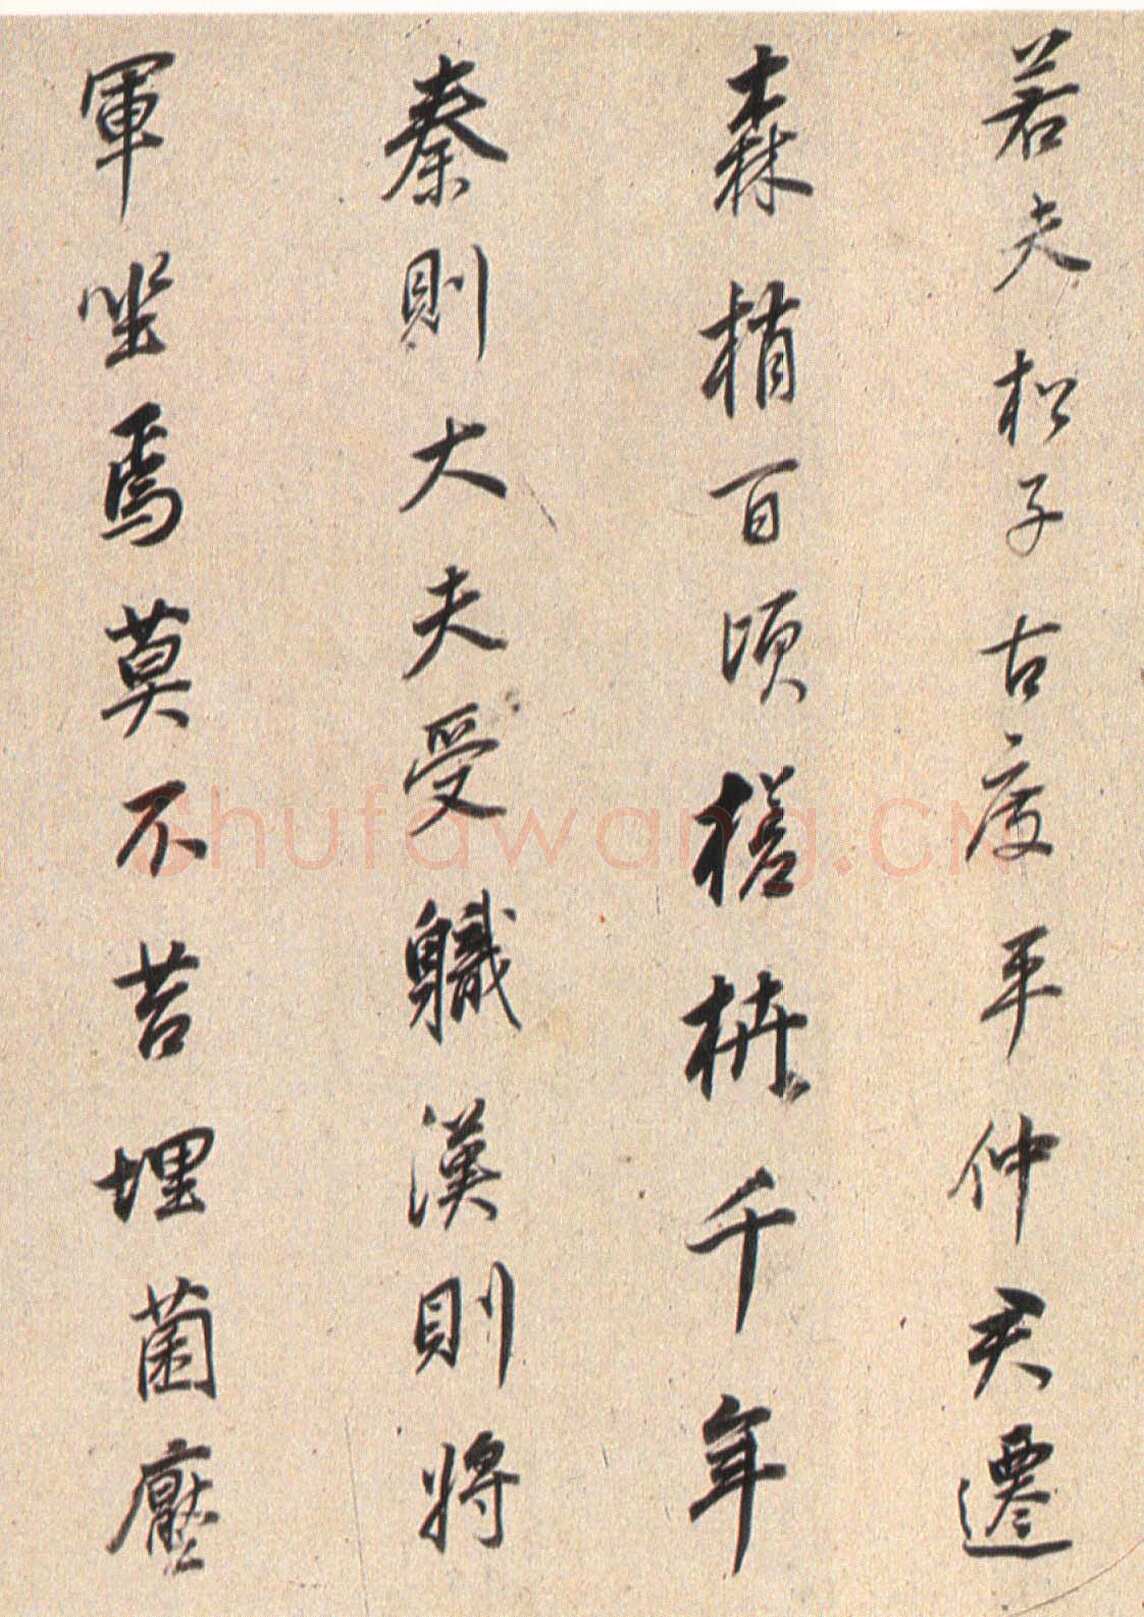 若夫松子古度平仲君遷
森梢百頃槎枿千年
秦則大夫受軄漢則將
軍坐焉莫不苔埋菌壓
shufawang.CN